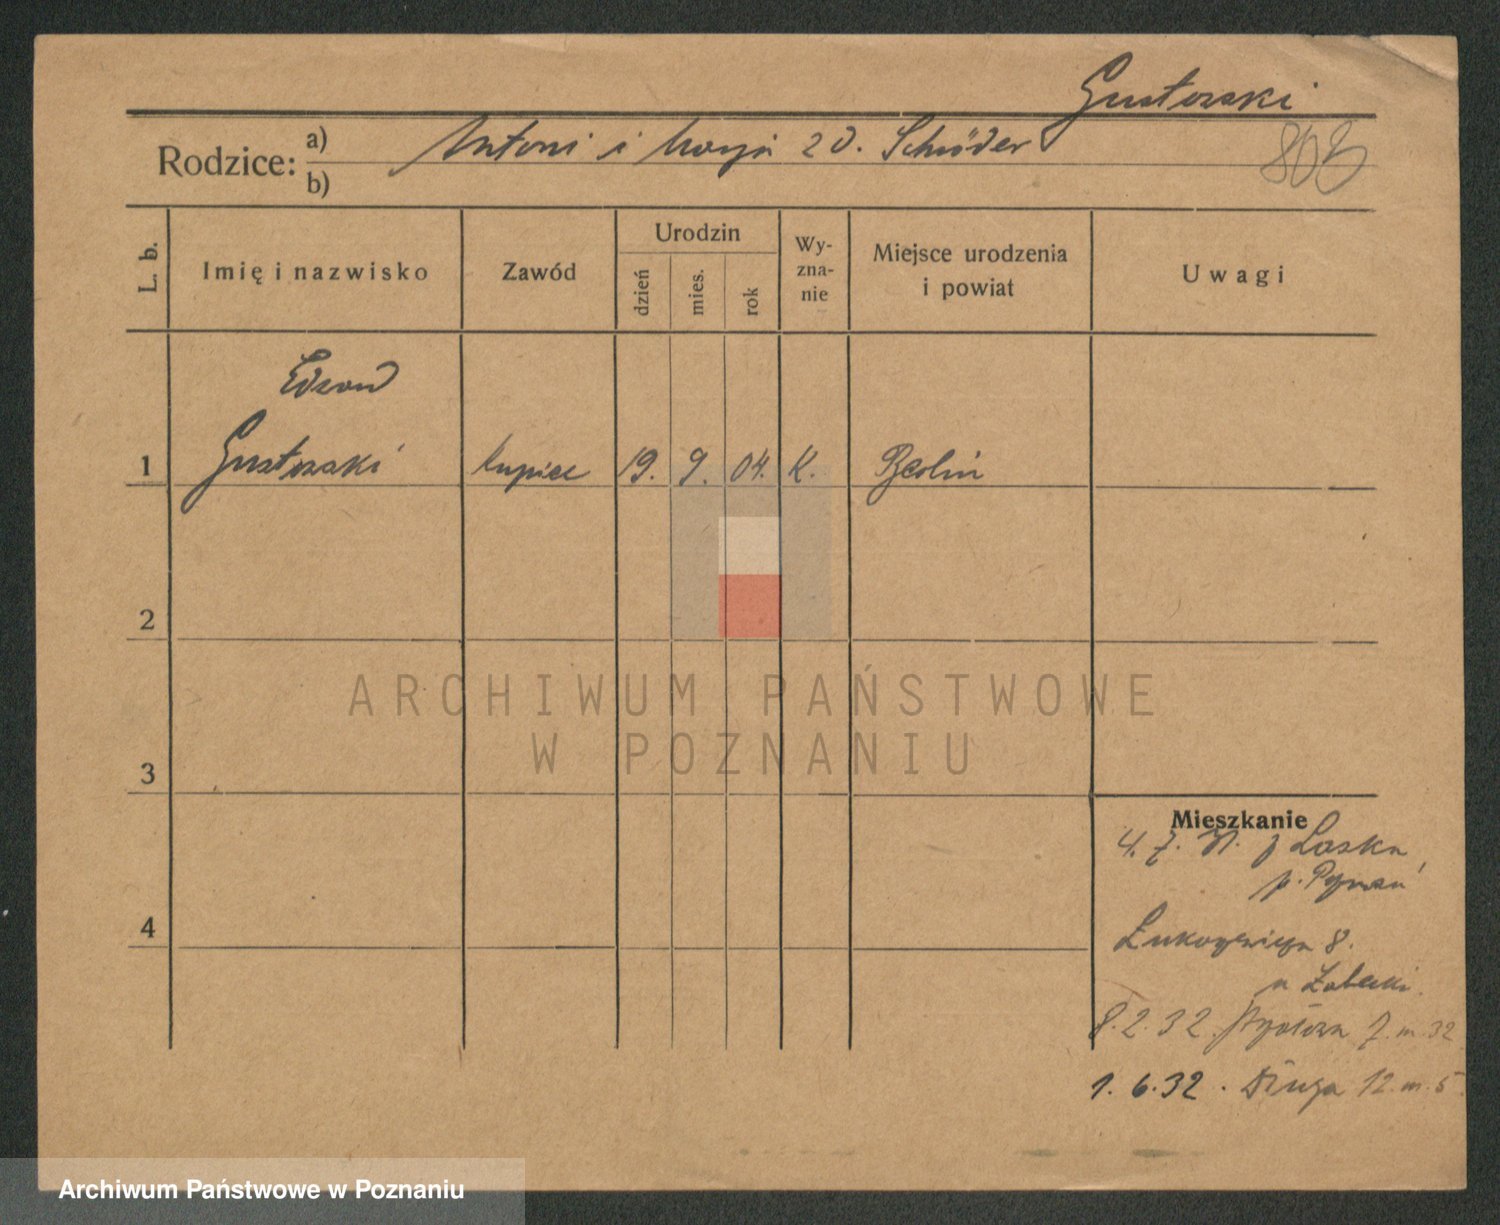 Gustowski
Rodzice:
a) Antoni i Marja zd. Schröder
b)
803
L. b.
Imię i nazwisko
Zawód
Urodzin
dzień
mies.
rok
Wy-
zna-
nie
Miejsce urodzenia
i powiat
Uwagi
Edward
1 Gustowski kupiec 19. 9. 04. K. Berlin
2
ARCHIWUM PAŃSTWOWE
W POZNANIU
3
Mieszkanie
4. 7. 31. z Laska
p. Poznań
4
8.
u Żabecki.
8.2.32. 7. m. 32
1.6.32. Długa 12. m. 5.
Archiwum Państwowe w Poznaniu